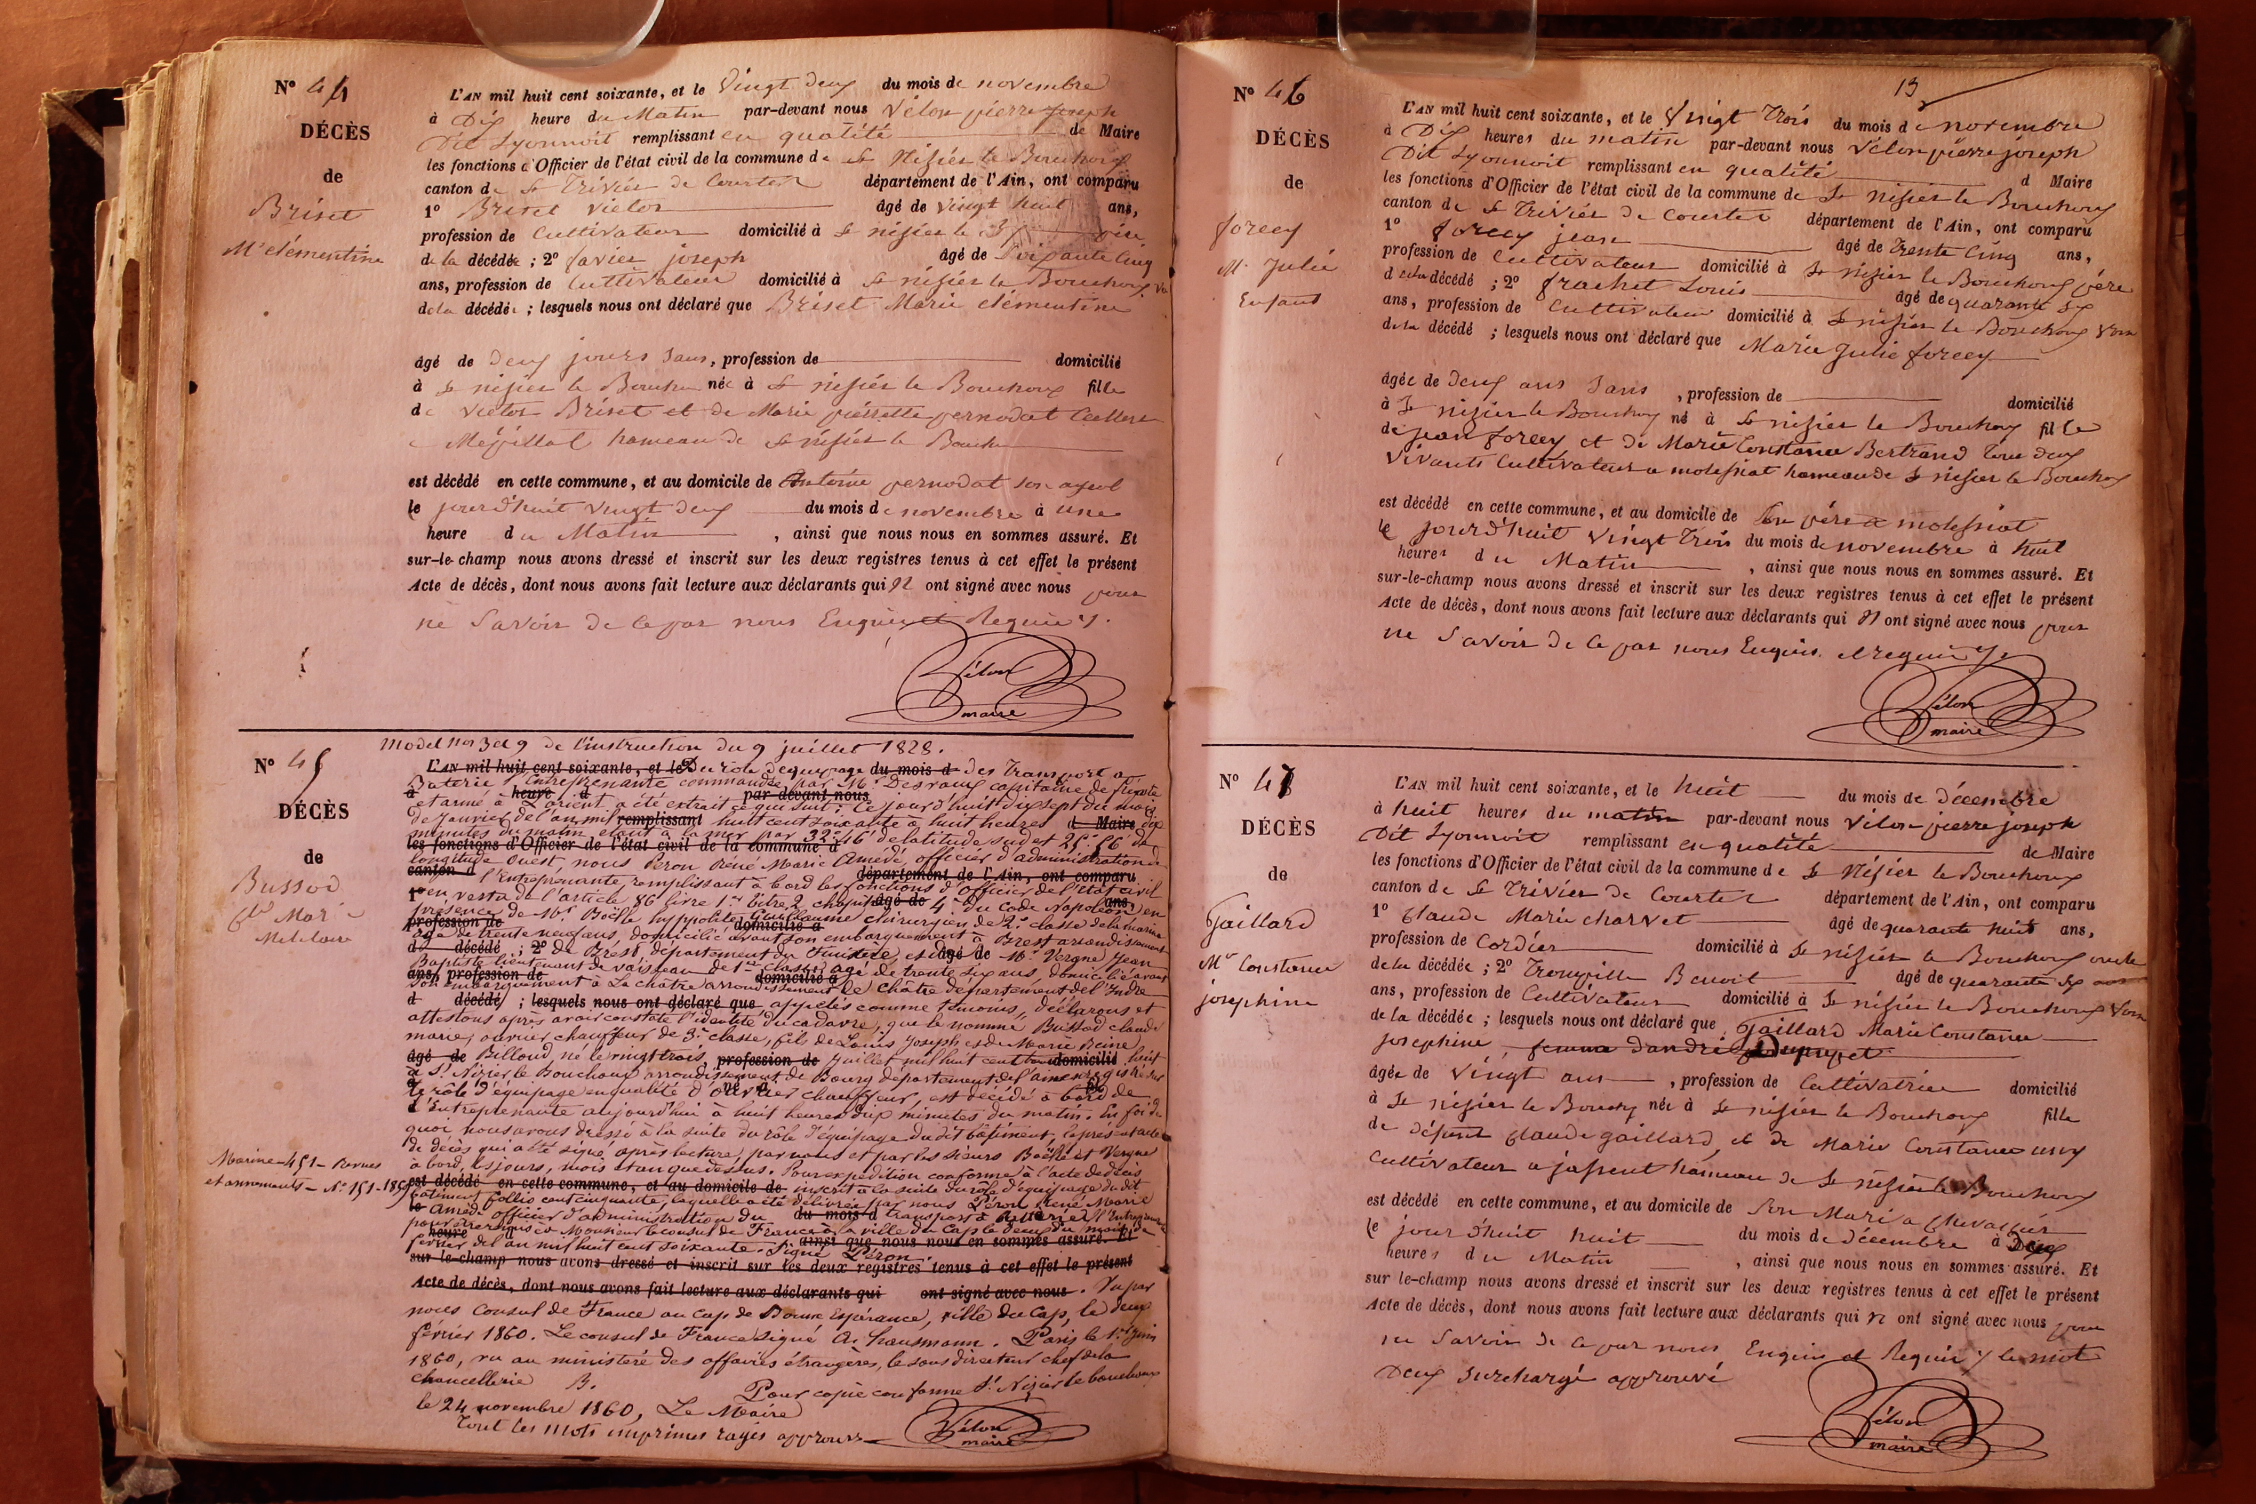 N° 44
DÉCÈS
de
Briset
Mie clémentine
L'AN mil huit cent soixante, et le Vingt deux du mois de novembre
à Dix heure du Matin par-devant nous Vélon pierre joseph
Dit Lyonnoit remplissant en qualité de Maire
les fonctions d'Officier de l'état civil de la commune de St Nisier le Bouchoux
canton de St Trivier de Courtes département de l'Ain, ont comparu
1° Briset victor âgé de vingt huit ans,
profession de Cultivateur domicilié à St nisier le père
de la décédée ; 2° favier joseph âgé de Soixante cinq
ans, profession de Cultivateur domicilié à St nisier le Bouchoux
de la décédée ; lesquels nous ont déclaré que Briset Marie clémentine
âgé de deux jours sans, profession de domicilié
à St nisier le Bouchoux née à St nisier le Bouchoux fille
de victor Briset et de Marie pierrette pernodat
hameau de St nisier le Bouchoux
est décédé en cette commune, et au domicile de Antoine pernodat son ayeol
le jourd'huit vingt deux du mois de novembre à une
heure du Matin , ainsi que nous nous en sommes assuré. Et
sur-le-champ nous avons dressé et inscrit sur les deux registres tenus à cet effet le présent
Acte de décès, dont nous avons fait lecture aux déclarants qui n ont signé avec nous pour
ne Savoir de ce par nous Enquis et Requis
Vélon
maire
N° 45
DÉCÈS
de
Bussod
Cde Marie
Militaire
Marine - 451 - Revues
et armements - N° 151 - 18
Model nos 3 et 9 de l'instruction du 9 juillet 1828.
L'AN mil huit cent soixante, et le Du rôle d'équipage du mois d des Transport a
Baterie l'Entreprenante commandée par Mr Desvaux capitaine de frégate
à heure d par-devant nous
et armé à Lorient a été extrait ce qui suit : Ce jourd'huit dix sept du mois
de Janvier de l'an mil remplissant huit cent soixante à huit heures d Maire dix
minutes du matin, étant à la mer par 32° 46' de latitude sud et 25° 56' de
les fonctions d'Officier de l'état civil de la commune d
longitude Ouest nous Péron Réné Marie Amédé, officier d'administration de
canton d l'Entreprenante, remplissant à bord les fonctions d'officier de l'état civil département de l'Ain, ont comparu
1° en vertu de l'article 86 livre 1er titre 2 chapitre âgé de 4e du Code Napoléon, en ans,
présence de Mr Boëlle hyppolite Guillaume chirurgien de 2e classe de la marine
profession de domicilié à
âgé de trente neuf ans, domicilié avant son embarquement à Brest arrondissement
d décédé ; 2° de Brest, département du Finistère, et âgé de Mr Vergne Jean
Baptiste lieutenant de vaisseau de 1ere classe, âgé de trente six ans, domicilié avant
ans, profession de domicilié à
son embarquement à La châtre arrondissement de La châtre département de l'Indre
d décédé ; lesquels nous ont déclaré que appelés comme témoins, déclarons et
attestons après avoir constaté l'identité du cadavre, que le nommé Bussod claude
marie, ouvrier chauffeur de 3e classe, fils de Louis Joseph et de Marie Reine
âgé de Billoud, né le vingt trois, profession de Juillet mil huit cent domicilié huit
à St Nizier le Bouchoux arrondissement de Bourg département de l'ain enregistré sur
le rôle d'équipage en qualité d'Ouvrier chauffeur, est décédé à bord de
l'Entreprenante aujourd'hui à huit heures dix minutes du matin. En foi de
quoi nous avons dressé à la suite du rôle d'équipage du dit bâtiment, le présent acte
de décès qui a été signé après lecture, par nous et par les sieurs Boëlle et Vergne
à bord, les jours, mois et an que dessus. Pour expédition conforme à l'acte de décès
est décédé en cette commune, et au domicile de inscrit à la suite du rôle d'équipage du dit
bâtiment follio cent cinquante, laquelle a été délivrée par nous Péron Réné Marie
le Amédé officier d'administration du du mois d transport à Batterie l'Entreprenante
pour être remis à Monsieur le consul de France à la ville du Cap le deux du mois de
heure d ainsi que nous nous en sommes assuré. Et
février de l'an mil huit cent soixante. Signé Péron
sur-le-champ nous avons dressé et inscrit sur les deux registres tenus à cet effet le présent
Acte de décès, dont nous avons fait lecture aux déclarants qui ont signé avec nous. Vu par
nous Consul de France au Cap de Bonne Espérance, ville du Cap, le deux
février 1860. Le consul de France signé A. hausmann. Paris le 1er Juin
1860, vu au ministère des affaires étrangères, le sous directeur chef de la
chancellerie B.
Pour copie conforme St Nizier le bouchoux
le 24 novembre 1860, Le Maire
Tout les mots imprimés rayés approuvés
Vélon
maire
13
N° 46
DÉCÈS
de
forey
Mie Julie
Enfant
L'AN mil huit cent soixante, et le Vingt Trois du mois de novembre
à Dix heures du matin par-devant nous Vélon pierre joseph
Dit Lyonnoit remplissant en qualité d Maire
les fonctions d'Officier de l'état civil de la commune de St nisier le Bouchoux
canton de St Trivier de Courtes département de l'Ain, ont comparu
1° forey jean âgé de Trente Cinq ans,
profession de Cultivateur domicilié à St nisier le Bouchoux père
de la décédé ; 2° frachet Louis âgé de quarante six
ans, profession de Cultivateur domicilié à St nisier le Bouchoux Voisin
de la décédé ; lesquels nous ont déclaré que Marie Julie forey
âgée de deux ans sans , profession de domicilié
à St nisier le Bouchoux né à St nisier le Bouchoux fille
de jean forey et de Marie Constance Bertrand Tous deux
Vivants Cultivateur a molessiat hameau de St nisier le Bouchoux
est décédé en cette commune, et au domicile de Son père a molessiat
le jourd'huit Vingt Trois du mois de novembre à huit
heures du Matin , ainsi que nous nous en sommes assuré. Et
sur-le-champ nous avons dressé et inscrit sur les deux registres tenus à cet effet le présent
Acte de décès, dont nous avons fait lecture aux déclarants qui n ont signé avec nous pour
ne Savoir de ce par nous Enquis et requis
Vélon
maire
N° 47
DÉCÈS
de
Gaillard
Mie Constance
josephine
L'AN mil huit cent soixante, et le huit du mois de décembre
à huit heures du matin par-devant nous Vélon pierre joseph
Dit Lyonnoit remplissant en qualité de Maire
les fonctions d'Officier de l'état civil de la commune de St Nisier le Bouchoux
canton de St Trivier de Courtes département de l'Ain, ont comparu
1° Claude Marie charvet âgé de quarante huit ans,
profession de Cordier domicilié à St nisier le Bouchoux oncle
de la décédée ; 2° Tronville Benoit âgé de quarante six
ans, profession de Cultivateur domicilié à St nisier le Bouchoux Voisin
de la décédée ; lesquels nous ont déclaré que Gaillard Marie Constance
josephine, femme d'andré Dupupet
âgée de vingt ans , profession de Cultivatrice domicilié
à St nisier le Bouchoux née à St nisier le Bouchoux fille
de défunt Claude gaillard, et de Marie Constance
Cultivateur a hameau de St nisier le Bouchoux
est décédé en cette commune, et au domicile de Son Mari a
le jourd'huit huit du mois de décembre à Deux
heures du Matin , ainsi que nous nous en sommes assuré. Et
sur-le-champ nous avons dressé et inscrit sur les deux registres tenus à cet effet le présent
Acte de décès, dont nous avons fait lecture aux déclarants qui n ont signé avec nous pour
ne Savoir de ce par nous Enquis et Requis le mot
Deux surchargé approuvé
Vélon
maire